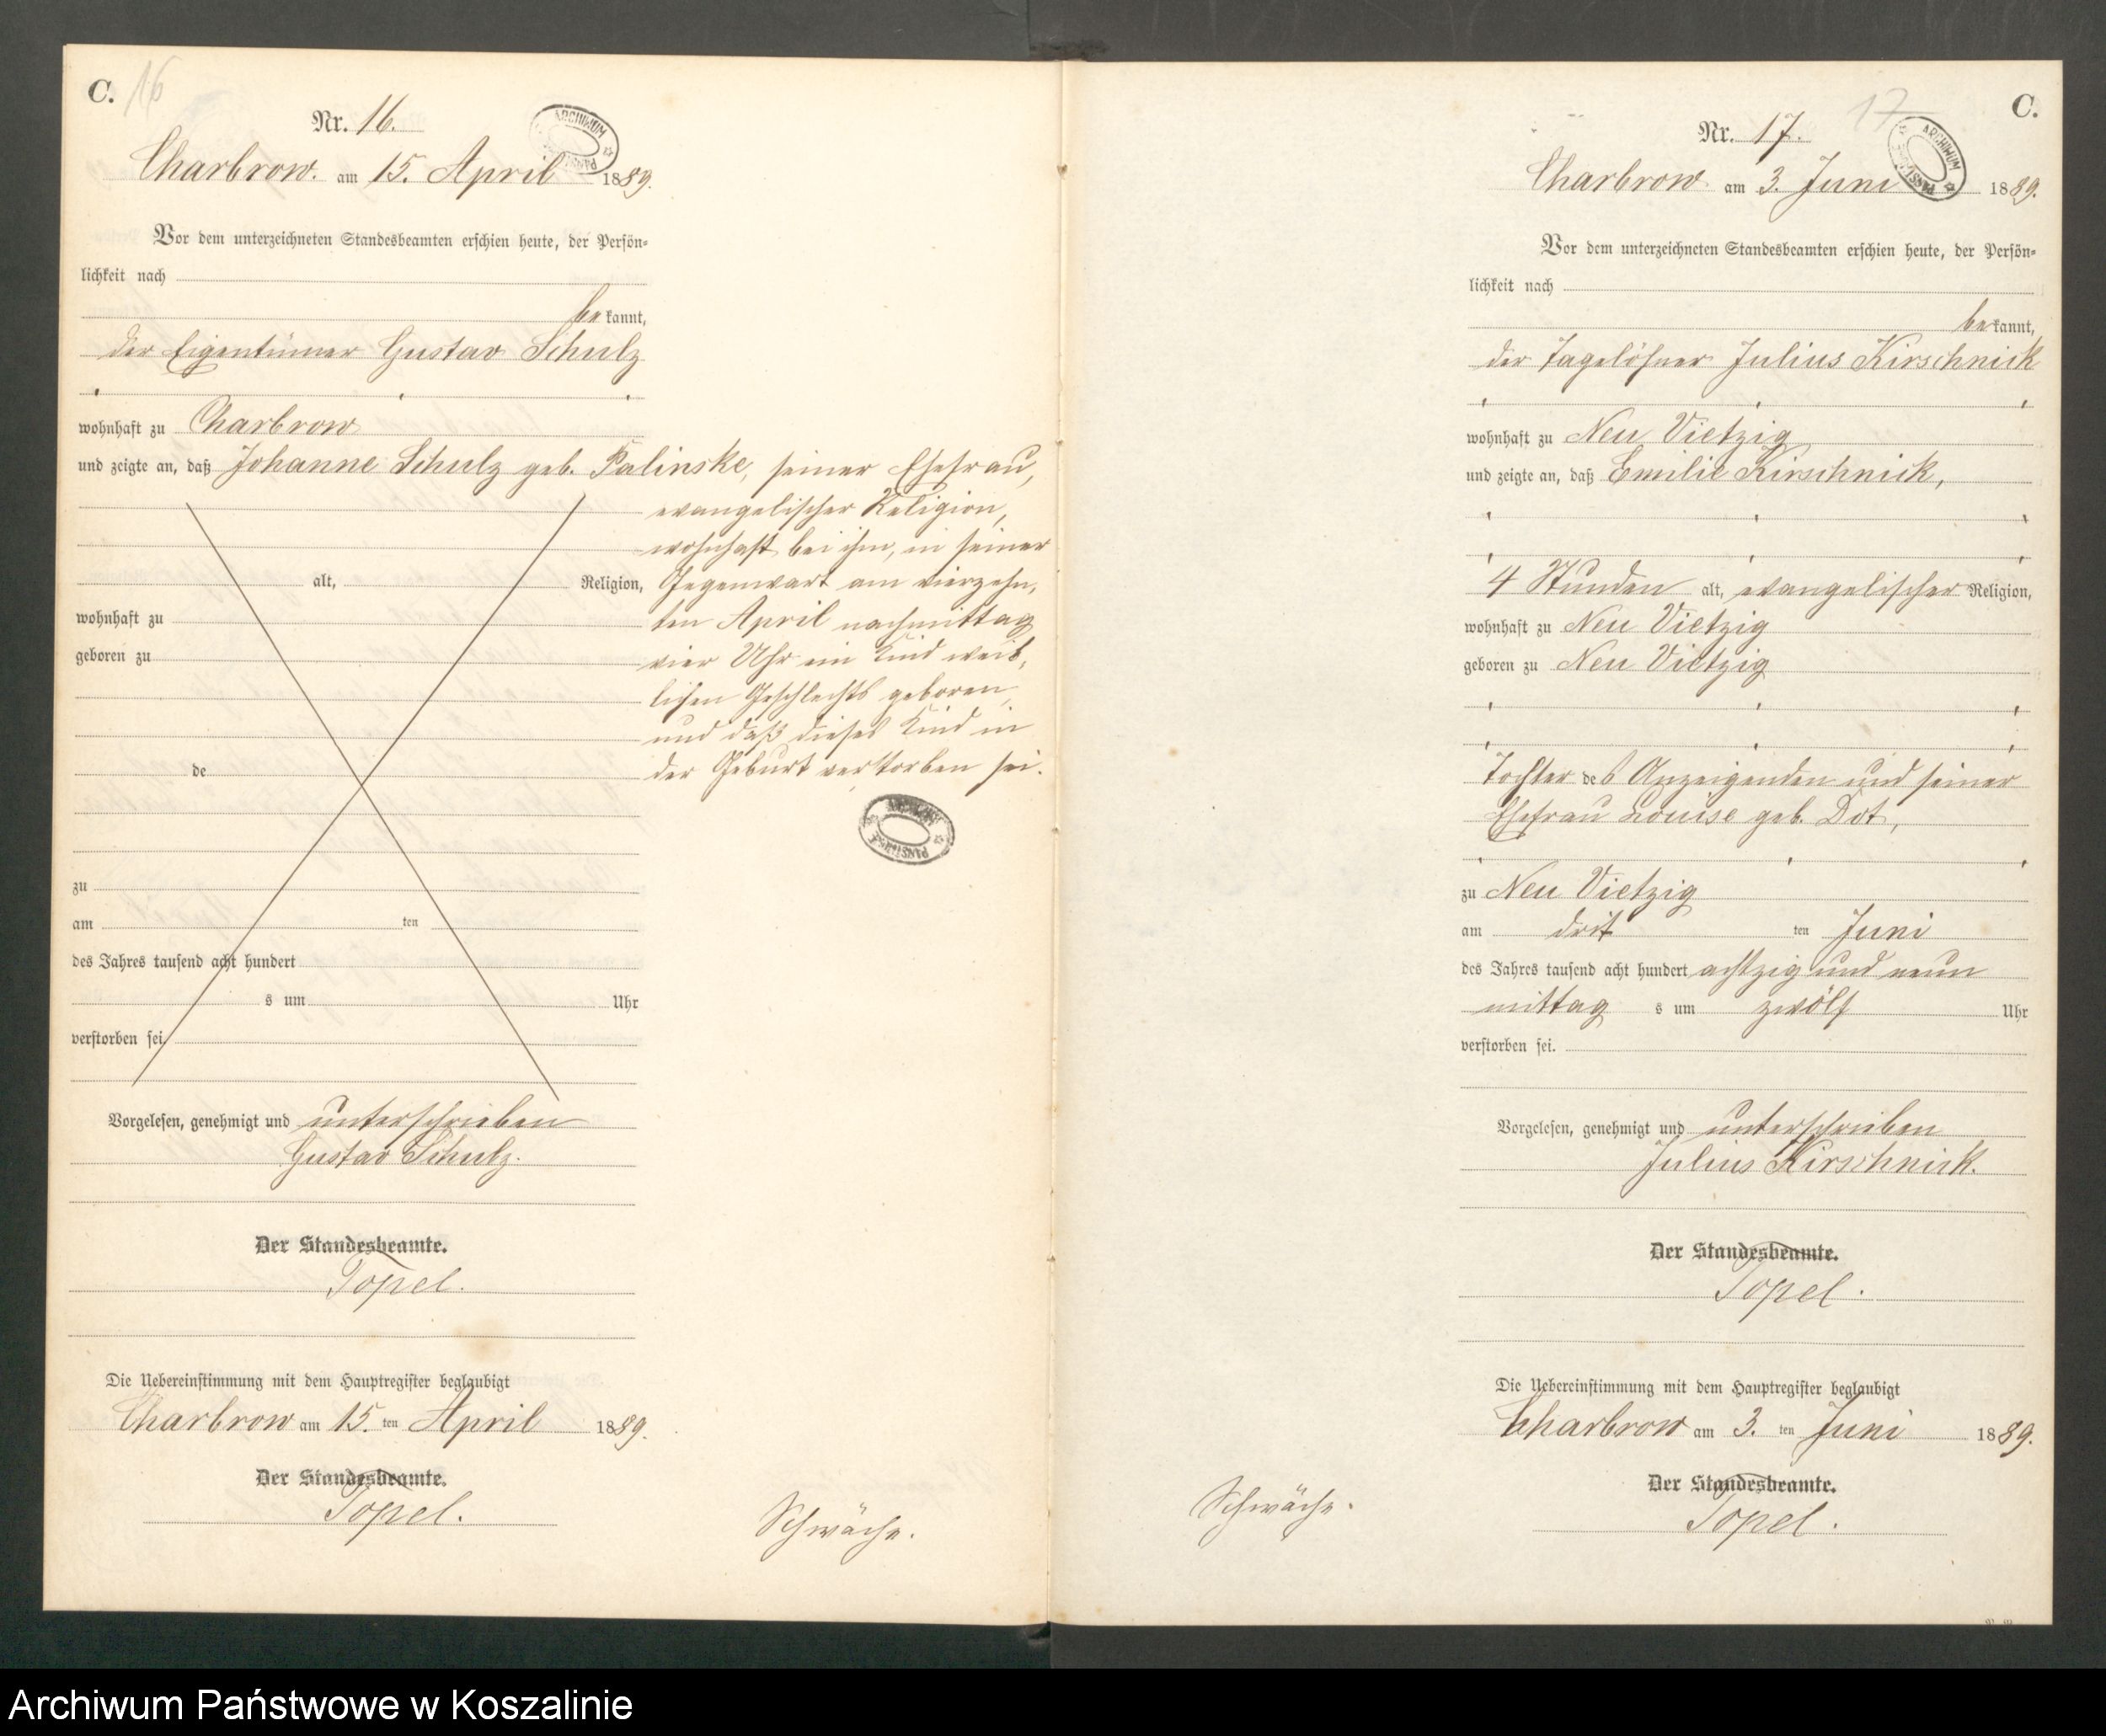 C. 16
Nr. 16.
ARCHIWUM PAŃSTWOWE
Charbrow. am 15. April 1889.
Vor dem unterzeichneten Standesbeamten erschien heute, der Persön-
lichkeit nach
bekannt,
der Eigentümer Gustav Schulz
wohnhaft zu Charbrow
und zeigte an, daß Johanne Schulz geb. Palinske, seiner Ehefrau,
evangelischer Religion,
wohnhaft bei ihm, in seiner
alt, Religion, Gegenwart am vierzehn-
wohnhaft zu ten April nachmittag
geboren zu vier Uhr ein Kind weib-
lichen Geschlechts geboren,
und daß dieses Kind in
de der Geburt verstorben sei.
ARCHIWUM PAŃSTWOWE
zu
am ten
des Jahres tausend acht hundert
s um Uhr
verstorben sei
Vorgelesen, genehmigt und unterschrieben
Gustav Schulz.
Der Standesbeamte.
Topel.
Die Uebereinstimmung mit dem Hauptregister beglaubigt
Charbrow am 15. ten April 1889.
Der Standesbeamte.
Topel.
Schwäche.
17 C.
Nr. 17.
ARCHIWUM PAŃSTWOWE
Charbrow am 3. Juni 1889.
Vor dem unterzeichneten Standesbeamten erschien heute, der Persön-
lichkeit nach
bekannt,
der Tagelöhner Julius Kirschnick
wohnhaft zu Neu Vietzig
und zeigte an, daß Emilie Kirschnick,
4 Stunden alt, evangelischer Religion,
wohnhaft zu Neu Vietzig
geboren zu Neu Vietzig
Tochter des Anzeigenden und seiner
Ehefrau Louise geb. Dot,
zu Neu Vietzig
am drit ten Juni
des Jahres tausend acht hundert achtzig und neun
mittag s um zwölf Uhr
verstorben sei.
Vorgelesen, genehmigt und unterschrieben
Julius Kirschnick.
Der Standesbeamte.
Topel.
Die Uebereinstimmung mit dem Hauptregister beglaubigt
Charbrow am 3. ten Juni 1889.
Der Standesbeamte.
Topel.
Schwäche.
Archiwum Państwowe w Koszalinie